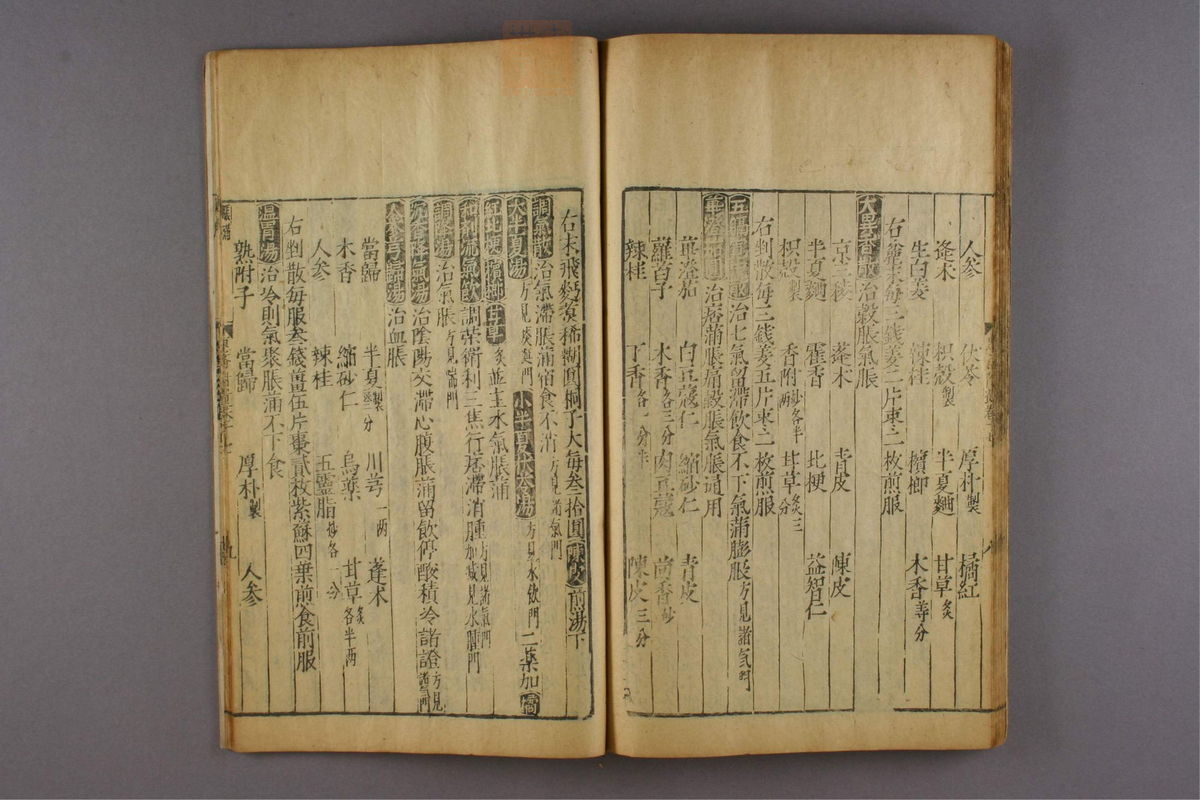 人參 伏苓 厚朴製 橘紅
蓬朮 枳殼製 半夏麯 甘草炙
生白姜 辣桂 檳榔 木香等分
右為末每三錢姜二片棗二枚煎服
大異香散治穀脹氣脹
京三稜 蓬朮 青皮 陳皮
半夏麯 藿香 北梗 益智仁
枳殼製 香附炒各半兩 甘草炙三分
右剉散每三錢姜五片棗二枚煎服
五膈寬中散治七氣留滯飲食不下氣滿膨脹方見諸氣門
蓽澄茄圓治痞滿脹痛穀脹氣脹通用
蓽澄茄 白豆蔻仁 縮砂仁 青皮
蘿蔔子 木香各三分 肉豆蔻 茴香炒
辣桂 丁香各一分半 陳皮三分
右末飛麪煮稀糊圓桐子大每叁拾圓陳皮煎湯下
調氣散治氣滯脹滿宿食不消方見諸氣門
大半夏湯方見痰與門 小半夏茯苓湯方見水飲門二藥加橘
紅北梗檳榔甘草炙並主水氣脹滿
和劑流氣飲調榮衛利三焦行痞滯消腫方見諸氣門加減見水腫門
治氣脹方見喘門
沉香降氣湯治陰陽交滯心腹脹滿留飲停酸積冷諸證方見諸氣門
人參芎歸湯治血脹
當歸 半夏製三分 川芎一兩 蓬朮
木香 縮砂仁 烏藥 甘草炙各半兩
人參 辣桂 五靈脂炒各一分
右剉散每服叁錢薑伍片棗貳枚紫蘇四葉煎食前服
溫胃湯治冷則氣聚脹滿不下食
熟附子 當歸 厚朴製 人參